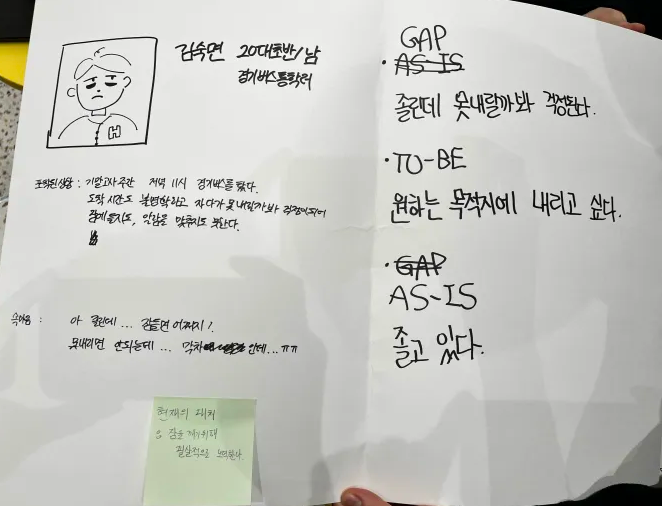 김숙면 20대초반/남
경기버스통학러
H
포착된상황 : 기말고사 주간 저녁 11시 경기버스를 탔다.
도착시간도 불변학하고 자다가 못내릴까봐 걱정이되어
잠에들지도, 알람을 맞추지도 못한다.
속마음 : 아 졸린데... 잠들면 어쩌지!
못내리면 안되는데... 막차 인데...ㅠㅠ
현재의 대처
잠을 깨기위해
필살적으로 노력한다.
GAP
· AS-IS
졸린데 못내릴까봐 걱정된다.
· TO-BE
원하는 목적지에 내리고 싶다.
· GAP
AS-IS
졸고 있다.